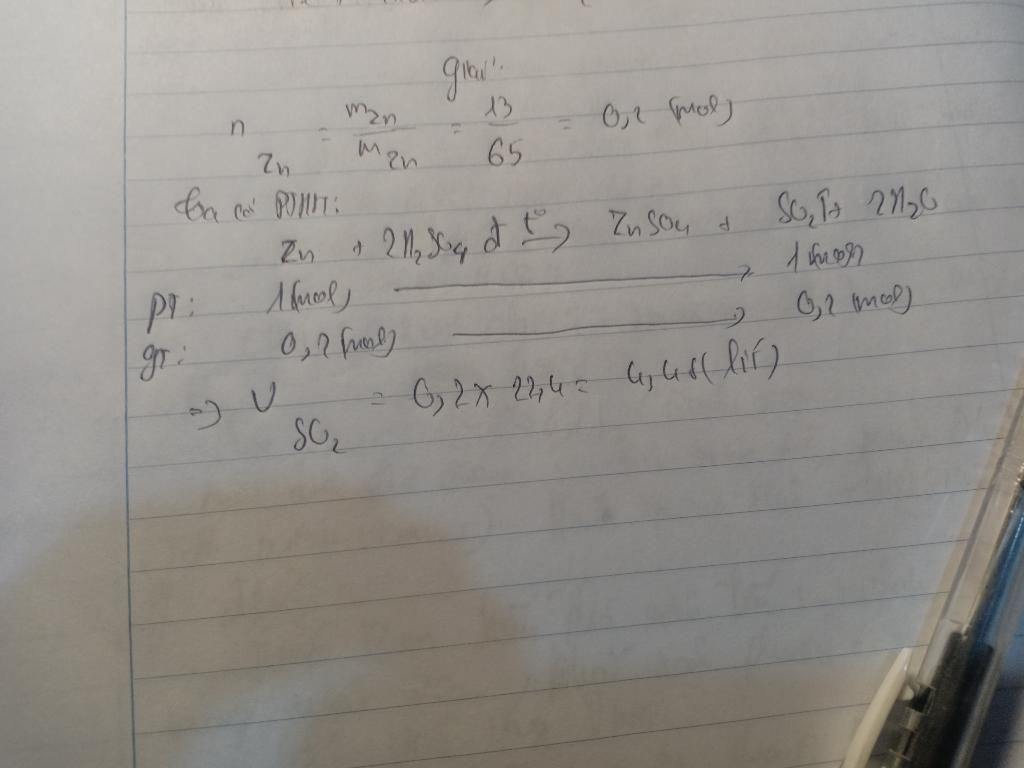 giải:
n Zn = mZn / MZn = 13 / 65 = 0,2 (mol)
Ta có PTHH:
Zn + 2H₂SO₄ đ t° → ZnSO₄ + SO₂↑ + 2H₂O
PT: 1 (mol) → 1 (mol)
gT: 0,2 (mol) → 0,2 (mol)
=> V SO₂ = 0,2 x 22,4 = 4,48 (lít)